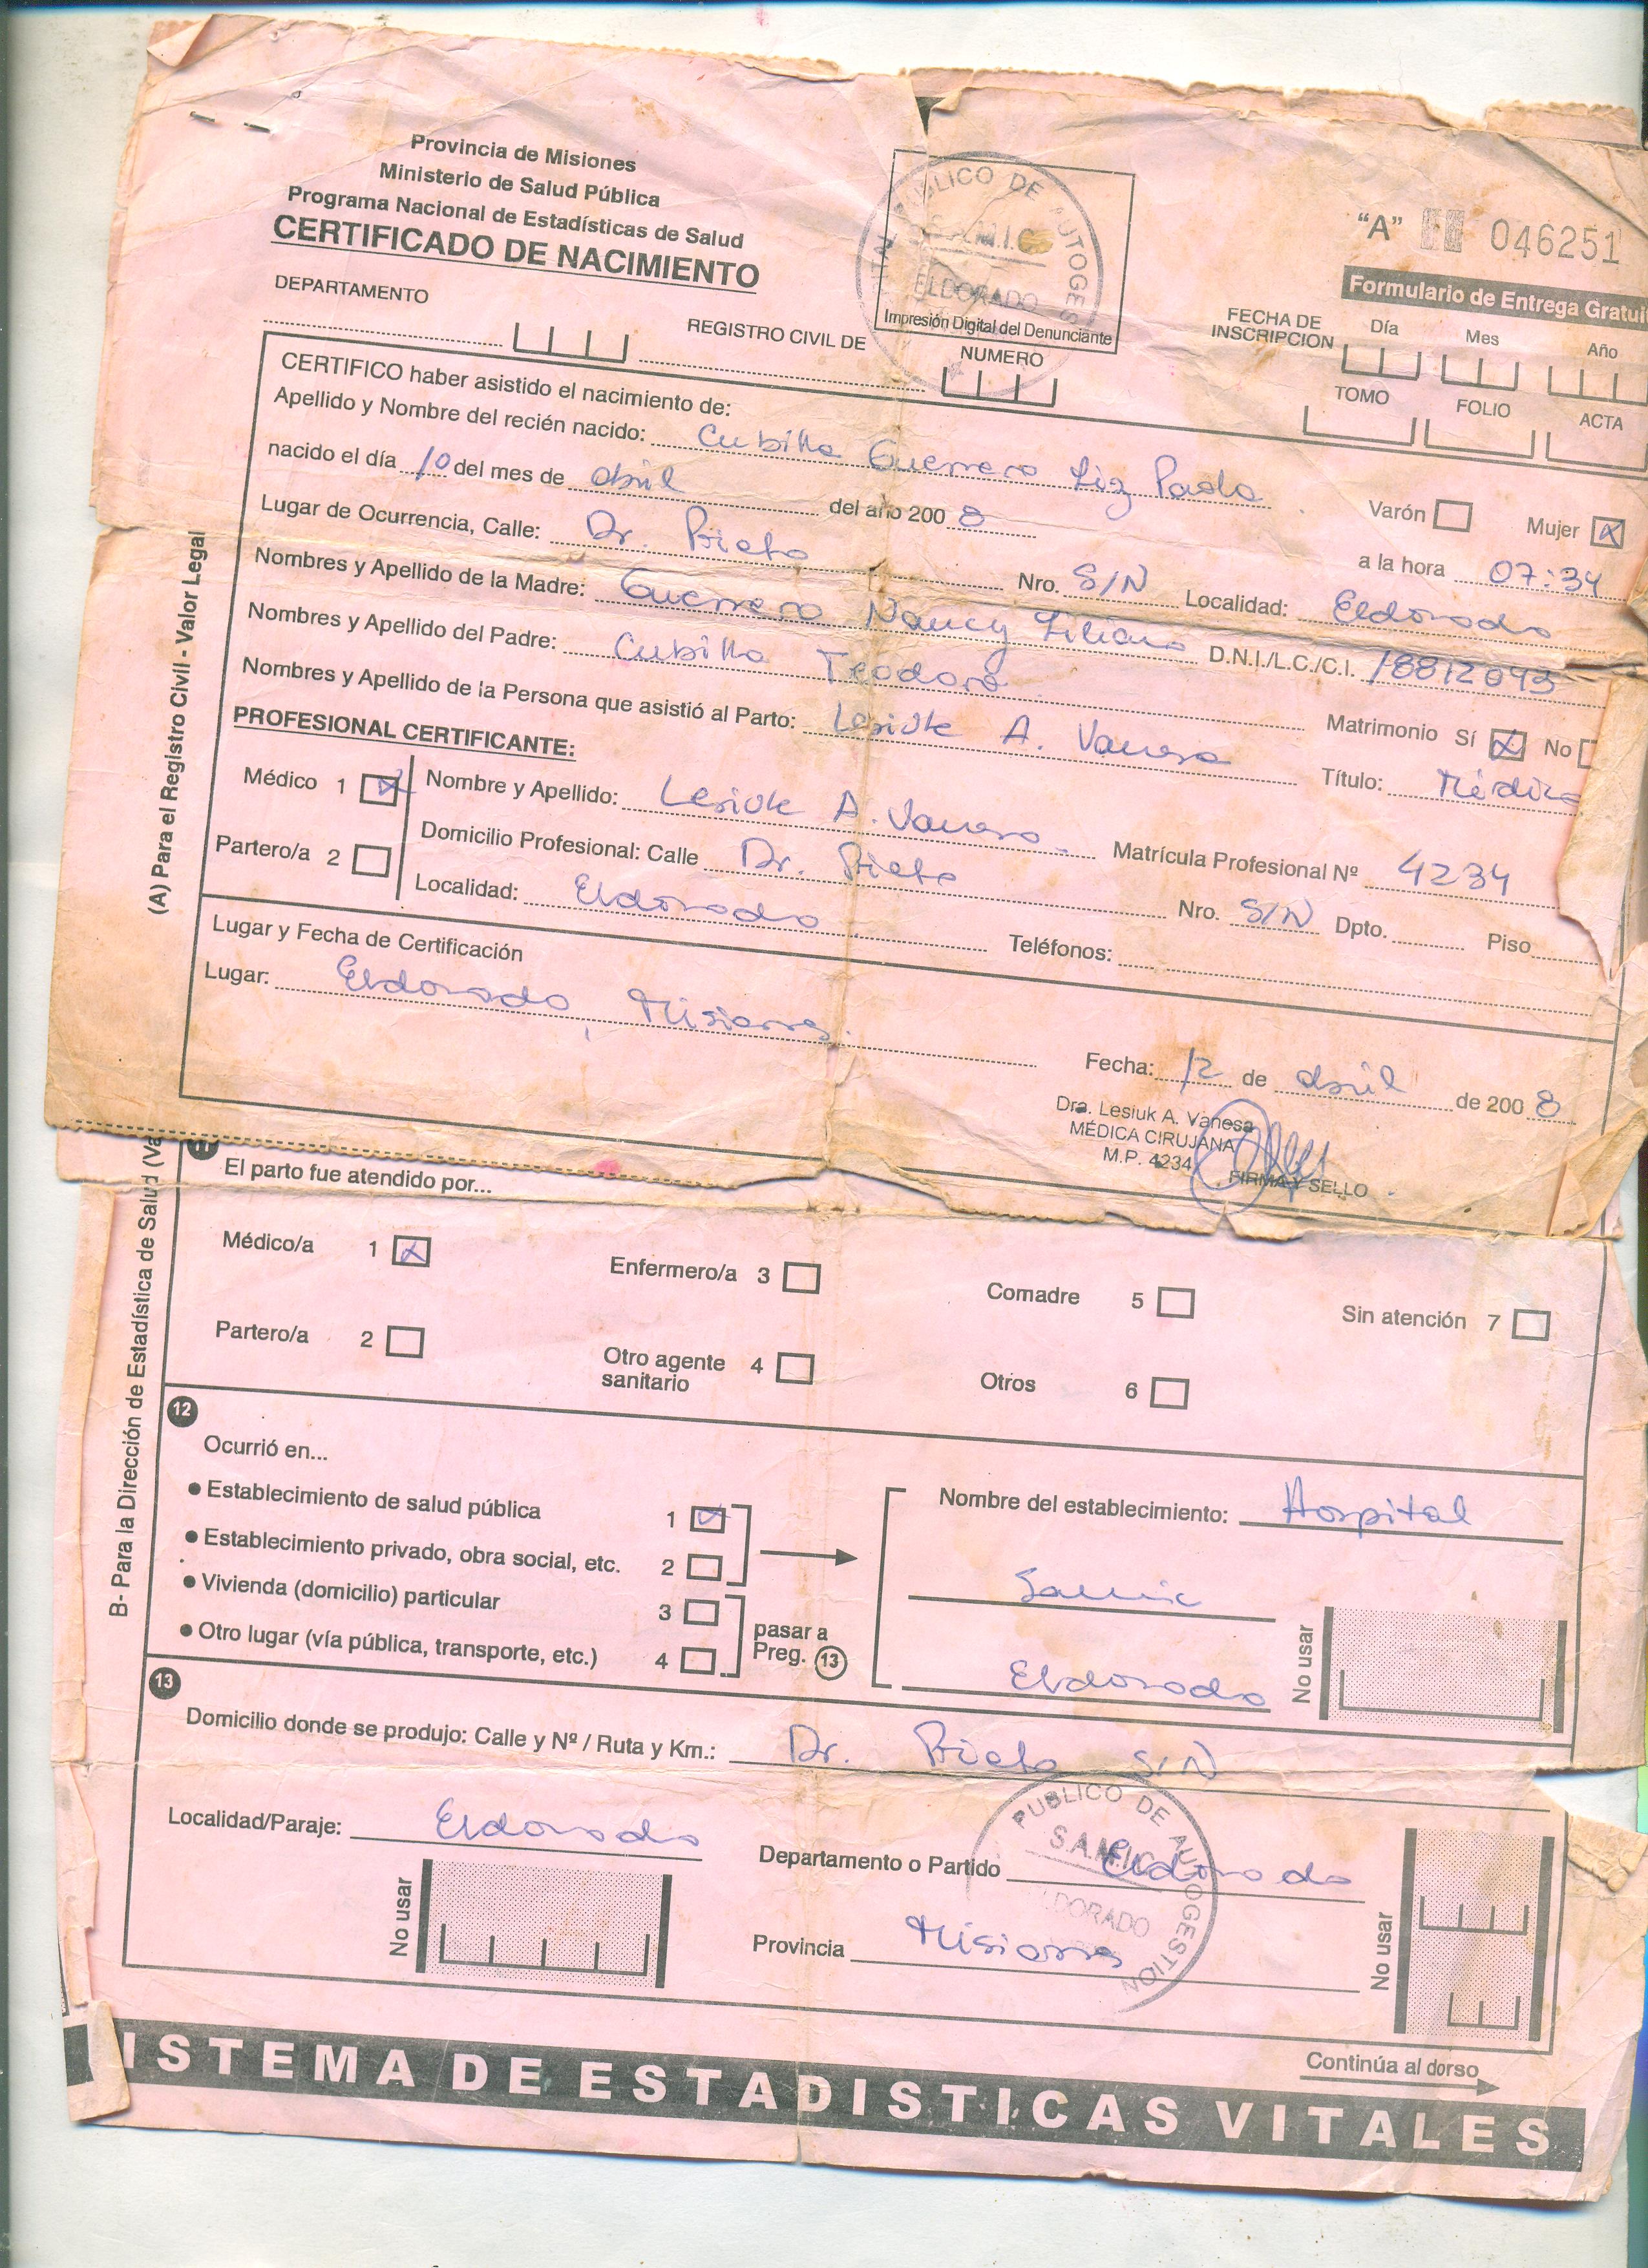 Provincia de Misiones
Ministerio de Salud Pública
Programa Nacional de Estadísticas de Salud
CERTIFICADO DE NACIMIENTO
PUBLICO DE AUTOGES
S.A.M.I.C.
ELDORADO
Impresión Digital del Denunciante
"A" 046251
Formulario de Entrega Gratui
DEPARTAMENTO
REGISTRO CIVIL DE
NUMERO
FECHA DE INSCRIPCION Día Mes Año
TOMO FOLIO ACTA
(A) Para el Registro Civil - Valor Legal
CERTIFICO haber asistido el nacimiento de:
Apellido y Nombre del recién nacido: Cubilla Guerrero Liz Paola
Varón Mujer X
nacido el día 10 del mes de abril del año 2008 a la hora 07:34
Lugar de Ocurrencia, Calle: Dr. Prieto Nro. S/N Localidad: Eldorado
Nombres y Apellido de la Madre: Guerrero Nancy Liliana D.N.I./L.C./C.I. 18812093
Nombres y Apellido del Padre: Cubilla Teodoro Matrimonio Sí X No
Nombres y Apellido de la Persona que asistió al Parto: Lesiuk A. Vanesa Título: Médica
PROFESIONAL CERTIFICANTE:
Médico 1 X
Partero/a 2
Nombre y Apellido: Lesiuk A. Vanesa Matrícula Profesional Nº 4234
Domicilio Profesional: Calle Dr. Prieto Nro. S/N Dpto. Piso
Localidad: Eldorado Teléfonos:
Lugar y Fecha de Certificación
Lugar: Eldorado, Misiones.
Fecha: 12 de abril de 2008
Dra. Lesiuk A. Vanesa
MÉDICA CIRUJANA
M.P. 4234
FIRMA Y SELLO
B- Para la Dirección de Estadística de Salud (Va
11
El parto fue atendido por...
Médico/a 1 X Enfermero/a 3 Comadre 5 Sin atención 7
Partero/a 2 Otro agente sanitario 4 Otros 6
12
Ocurrió en...
• Establecimiento de salud pública 1
• Establecimiento privado, obra social, etc. 2
• Vivienda (domicilio) particular 3
• Otro lugar (vía pública, transporte, etc.) 4
pasar a Preg. 13
Nombre del establecimiento: Hospital
Samic
Eldorado
No usar
13
Domicilio donde se produjo: Calle y Nº / Ruta y Km.: Dr. Prieto S/N
Localidad/Paraje: Eldorado
Departamento o Partido Eldorado
Provincia Misiones
No usar
No usar
PUBLICO DE AUTOGESTION
S.A.M.I.C.
ELDORADO
Continúa al dorso
ISTEMA DE ESTADISTICAS VITALES